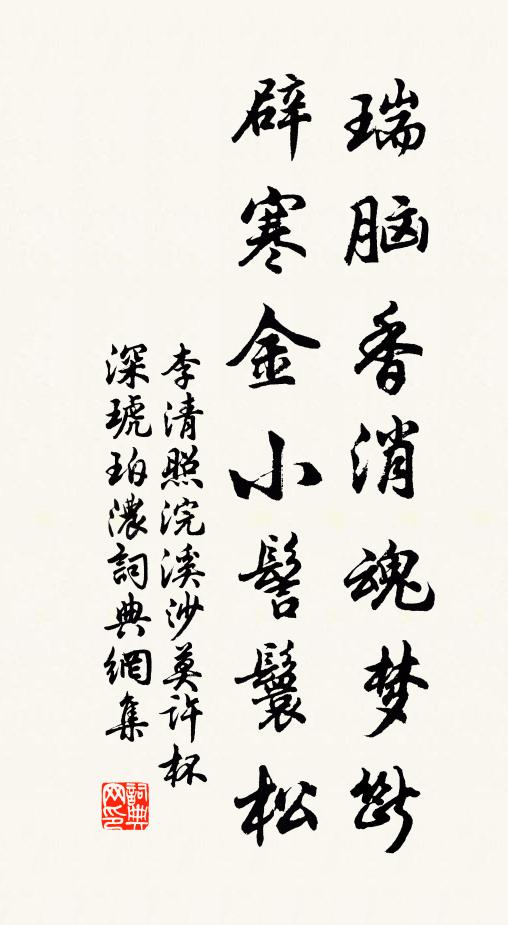 瑞脑香消魂梦断
辟寒金小髻鬟松
李清照浣溪沙莫许杯
深琥珀濃詞典網集
詞典网印